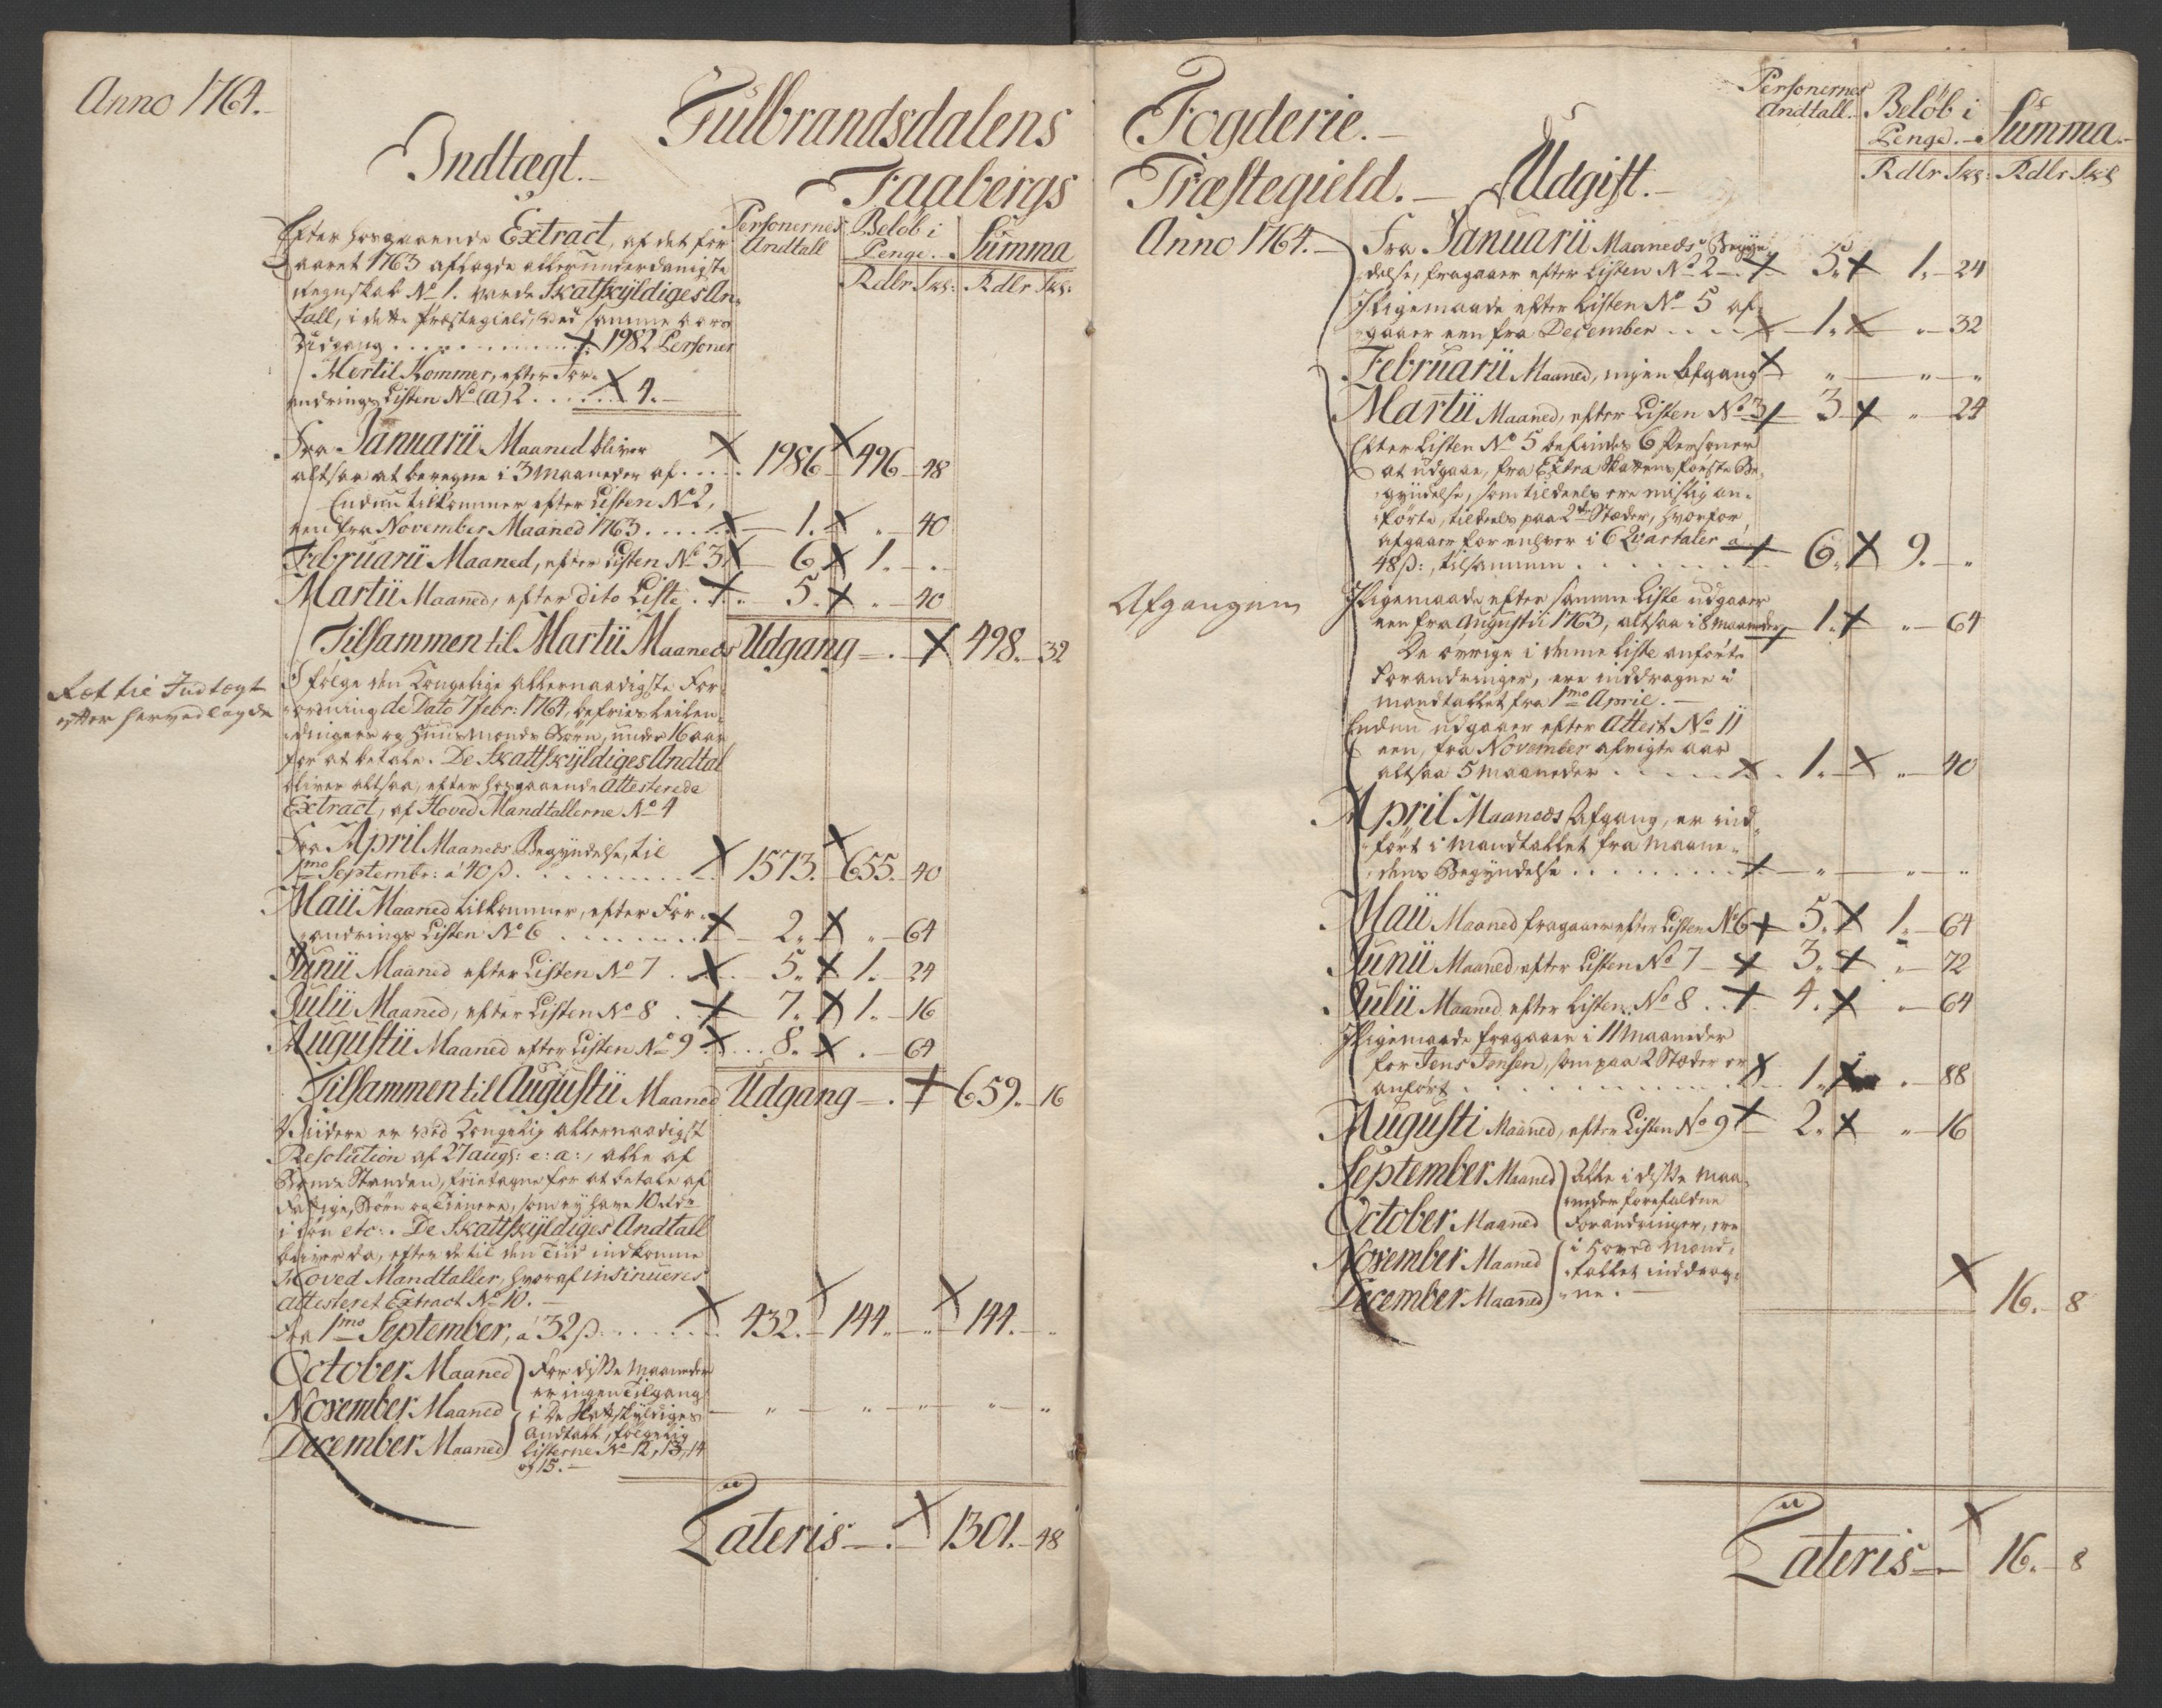 Anno 1764.
Gulbrandsdalens
Indtægt.
Faabergs
Personernes Andtall
Beløb i Penge.
Summa
Rdlr Sks: Rdlr Sks:
Efter hosgaaende Extract, af det for
aaret 1763 aflagde allerunderdanigste
Regnskab No 1. var de Skatskyldiges An-
tall, i dette Præstegield, ved samme aars
Udgang . . . 1982 Personer
Hertil Kommer, efter For-
andrings Listen No (a) 2 . . . 4.
Fra Januarii Maaned bliver
altsaa at beregne i 3 Maaneder af . . . 1986 496 48
Endnu tilkommer efter Listen No 2,
een fra November Maaned 1763 . . . 1. " 40
Februarii Maaned, efter Listen No 3 6 1. "
Martii Maaned, efter dito Liste . . 5. " 40
Tilsammen til Martii Maaneds Udgang 498. 32
I følge den Kongelige Allernaadigste For-
ordning de Dato 7 febr: 1764, befries Leilen-
dingers og Huusmænds Børn, under 16 aar
for at betale. De Skattskyldiges Andtal
bliver altsaa, efter hosgaaende Attesterede
Extract, af Hoved Mandtallerne No 4
Ræt til Indtægt
efter herved lagde
Fra April Maaneds Begyndelse, til
1mo Septembr: á 40 ß. . . . 1573. 655. 40
Maii Maaned tilkommer, efter For-
andrings Listen No 6 . . . 2. " 64
Junii Maaned efter Listen No 7 . . 5. 1. 24
Julii Maaned, efter Listen No 8 . . 7. 1. 16
Augustii Maaned efter Listen No 9 . . 8. . 64
Tilsammen til Augustii Maaned Udgang 659. 16
Viidere er ved Kongelig allernaadigst
Resolution af 27 augs: e: a:, alle af
Bonde Standen, friitagne for at betale af
deslige, Børn og Tienere, som ey have 10 rdr
i Løn etc:. De Skattskyldiges Andtall
bliver da, efter de til den Tiid indkomne
Hoved Mandtaller, hvoraf insinueres
Attesteret Extract No 10.
Fra 1mo September, a 32 ß . . . 432. 144. " 144. "
October Maaned
November Maaned
December Maaned
For disse Maaneder
er ingen Tilgang
i De Skatskyldiges
Andtall, følgelig
Listerne No 12, 13, 14
og 15.
Lateris 1301. 48
Fogderie.
Præstegield.
Udgift.
Personernes Andtall.
Beløb i Penge.
Summa.
Rdlr Sks: Rdlr Sks
Anno 1764.
Fra Januarii Maaneds Begyn-
delse, fragaaer efter Listen No 2 5. 1. 24
Iligemaade efter Listen No 5 af-
gaaer een fra December . . . 1. " 32
Februarii Maaned, ingen Afgang " " "
Martii Maaned, efter Listen No 3 3 " 24
Efter Listen No 5 befindes 6 Personer
at udgaae, fra Extra Skattens første Be-
gyndelse, som tildeels ere urigtig an-
førte, tildeels paa 2de Stæder, hvorfor
afgaaer for enhver i 6 Qvartaler a
48 ß:, tilsammen . . . 6. 9. "
Afgangen
Iligemaade efter samme Liste udgaaer
een fra Augustii 1763, altsaa i 8 Maaneder 1. " 64
De øvrige i denne Liste anførte
Forandringer, ere inddragne i
Mandtallet fra 1mo April.
Endnu udgaaer efter Attest No 11
een, fra November afvigte aar
altsaa 5 Maaneder . . . 1. " 40
April Maaneds Afgang, er ind-
ført i Mandtallet fra Maane-
dens Begyndelse . . . " " "
Maii Maaned fragaaer efter Listen No 6 5. 1. 64
Junii Maaned efter Listen No 7 3. " 72
Julii Maaned efter Listen No 8 . . 4. " 64
Iligemaade fragaaer i 11 Maaneder
for Jens Jensen, som paa 2 Stæder er
anført . . . 1. " 88
Augusti Maaned, efter Listen No 9 2. " 16
September Maaned
October Maaned
November Maaned
December Maaned
Alle i disse Maa-
neder forefaldne
Forandringer, ere
i Hoved Mand-
tallet inddrag-
ne.
16. 8
Lateris 16. 8